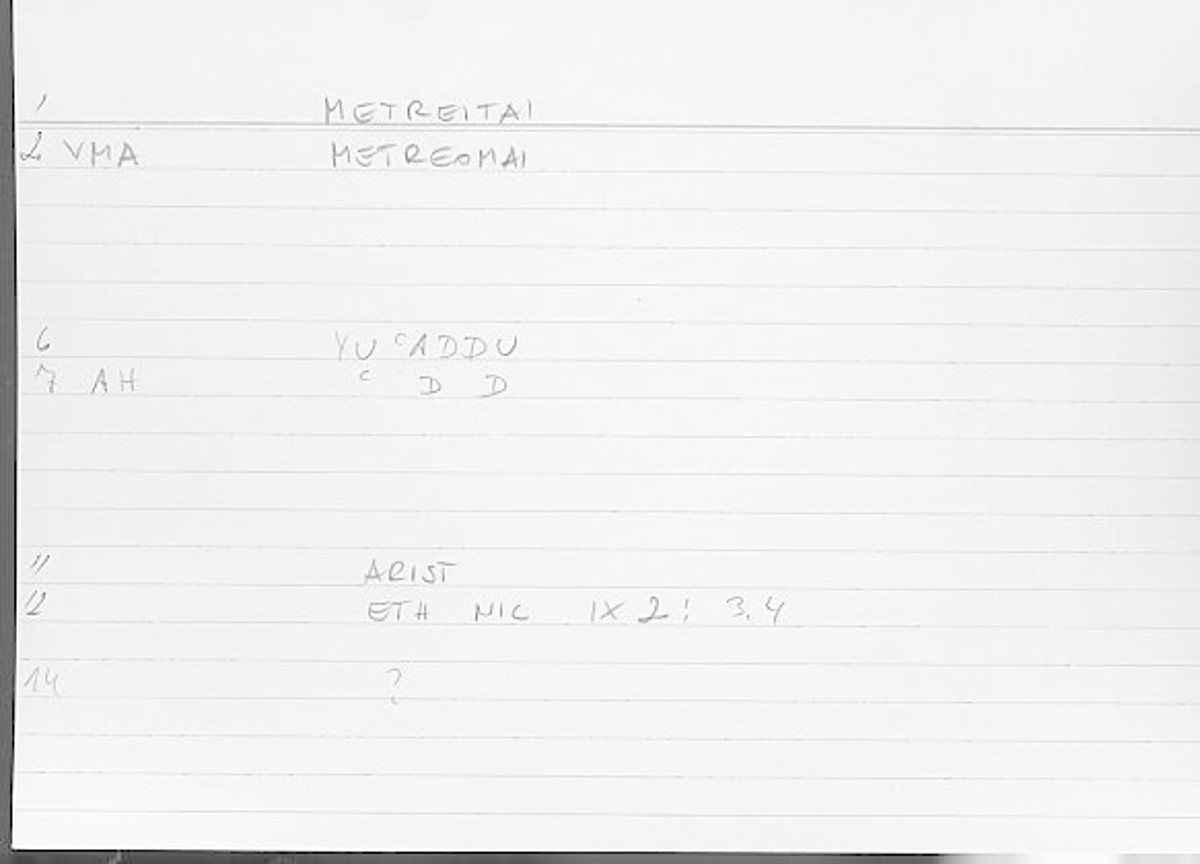 1 METREITAI
2 VMA METREOMAI
6 YU ʿADDU
7 AH ʿ D D
11 ARIST
12 ETH NIC IX 2! 3.4
14 ?